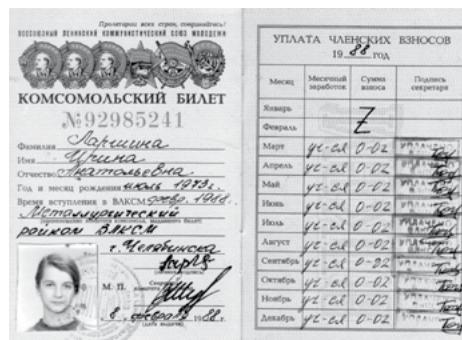 Пролетарии всех стран, соединяйтесь!
ВСЕСОЮЗНЫЙ ЛЕНИНСКИЙ КОММУНИСТИЧЕСКИЙ СОЮЗ МОЛОДЕЖИ
КОМСОМОЛЬСКИЙ БИЛЕТ
№92985241
Фамилия Ларшина
Имя Ирина
Отчество Анатольевна
Год и месяц рождения июль 1973г.
Время вступления в ВЛКСМ февр. 1988.
Металлургический
райком ВЛКСМ
г. Челябинска
М. П.
8 февраля 1988г.
(ДАТА ВЫДАЧИ)
УПЛАТА ЧЛЕНСКИХ ВЗНОСОВ
1988 год
Месяц Месячный заработок Сумма взноса Подпись секретаря
Январь Z
Февраль
Март уч-ся 0-02
Апрель уч-ся 0-02
Май уч-ся 0-02
Июнь уч-ся 0-02
Июль уч-ся 0-02
Август уч-ся 0-02
Сентябрь уч-ся 0-02
Октябрь уч-ся 0-02
Ноябрь уч-ся 0-02
Декабрь уч-ся 0-02